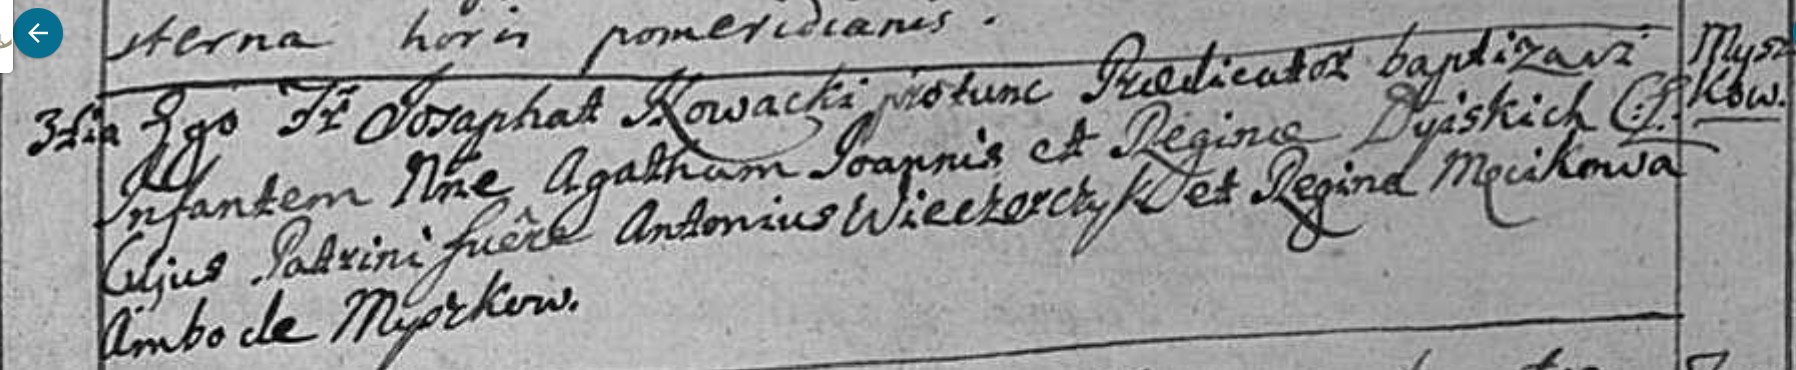 sterna horis pomeridianis.
3tia Ego Fr Josaphat Kowacki protunc Prædicator baptizavi Mysz
Infantem Nne Agatham Joannis et Reginæ Dyiskich C: L: kow.
Cujus Patrini fuêre Antonius Wieczorczyk et Regina Męcikowa
Ambo de Myszkow.